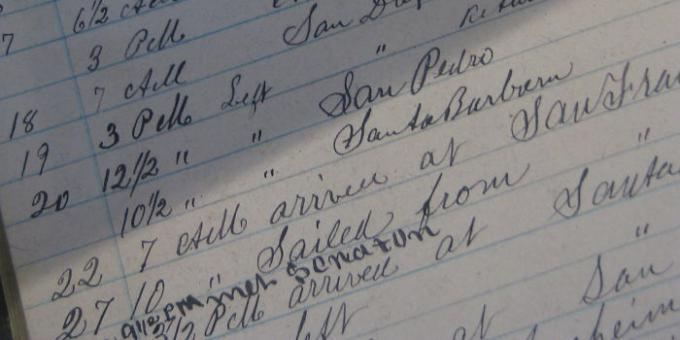 6 1/2 AM
7 3 PM San
7 AM "
18 3 PM Left San Pedro
19 12 1/2 " " Santa Barbera
20 10 1/2 " "
7 AM arrived at San Fran
22 10 " Sailed from "
9 1/2 pm met Senator
27 1/2 PM arrived at Santa
left at San "